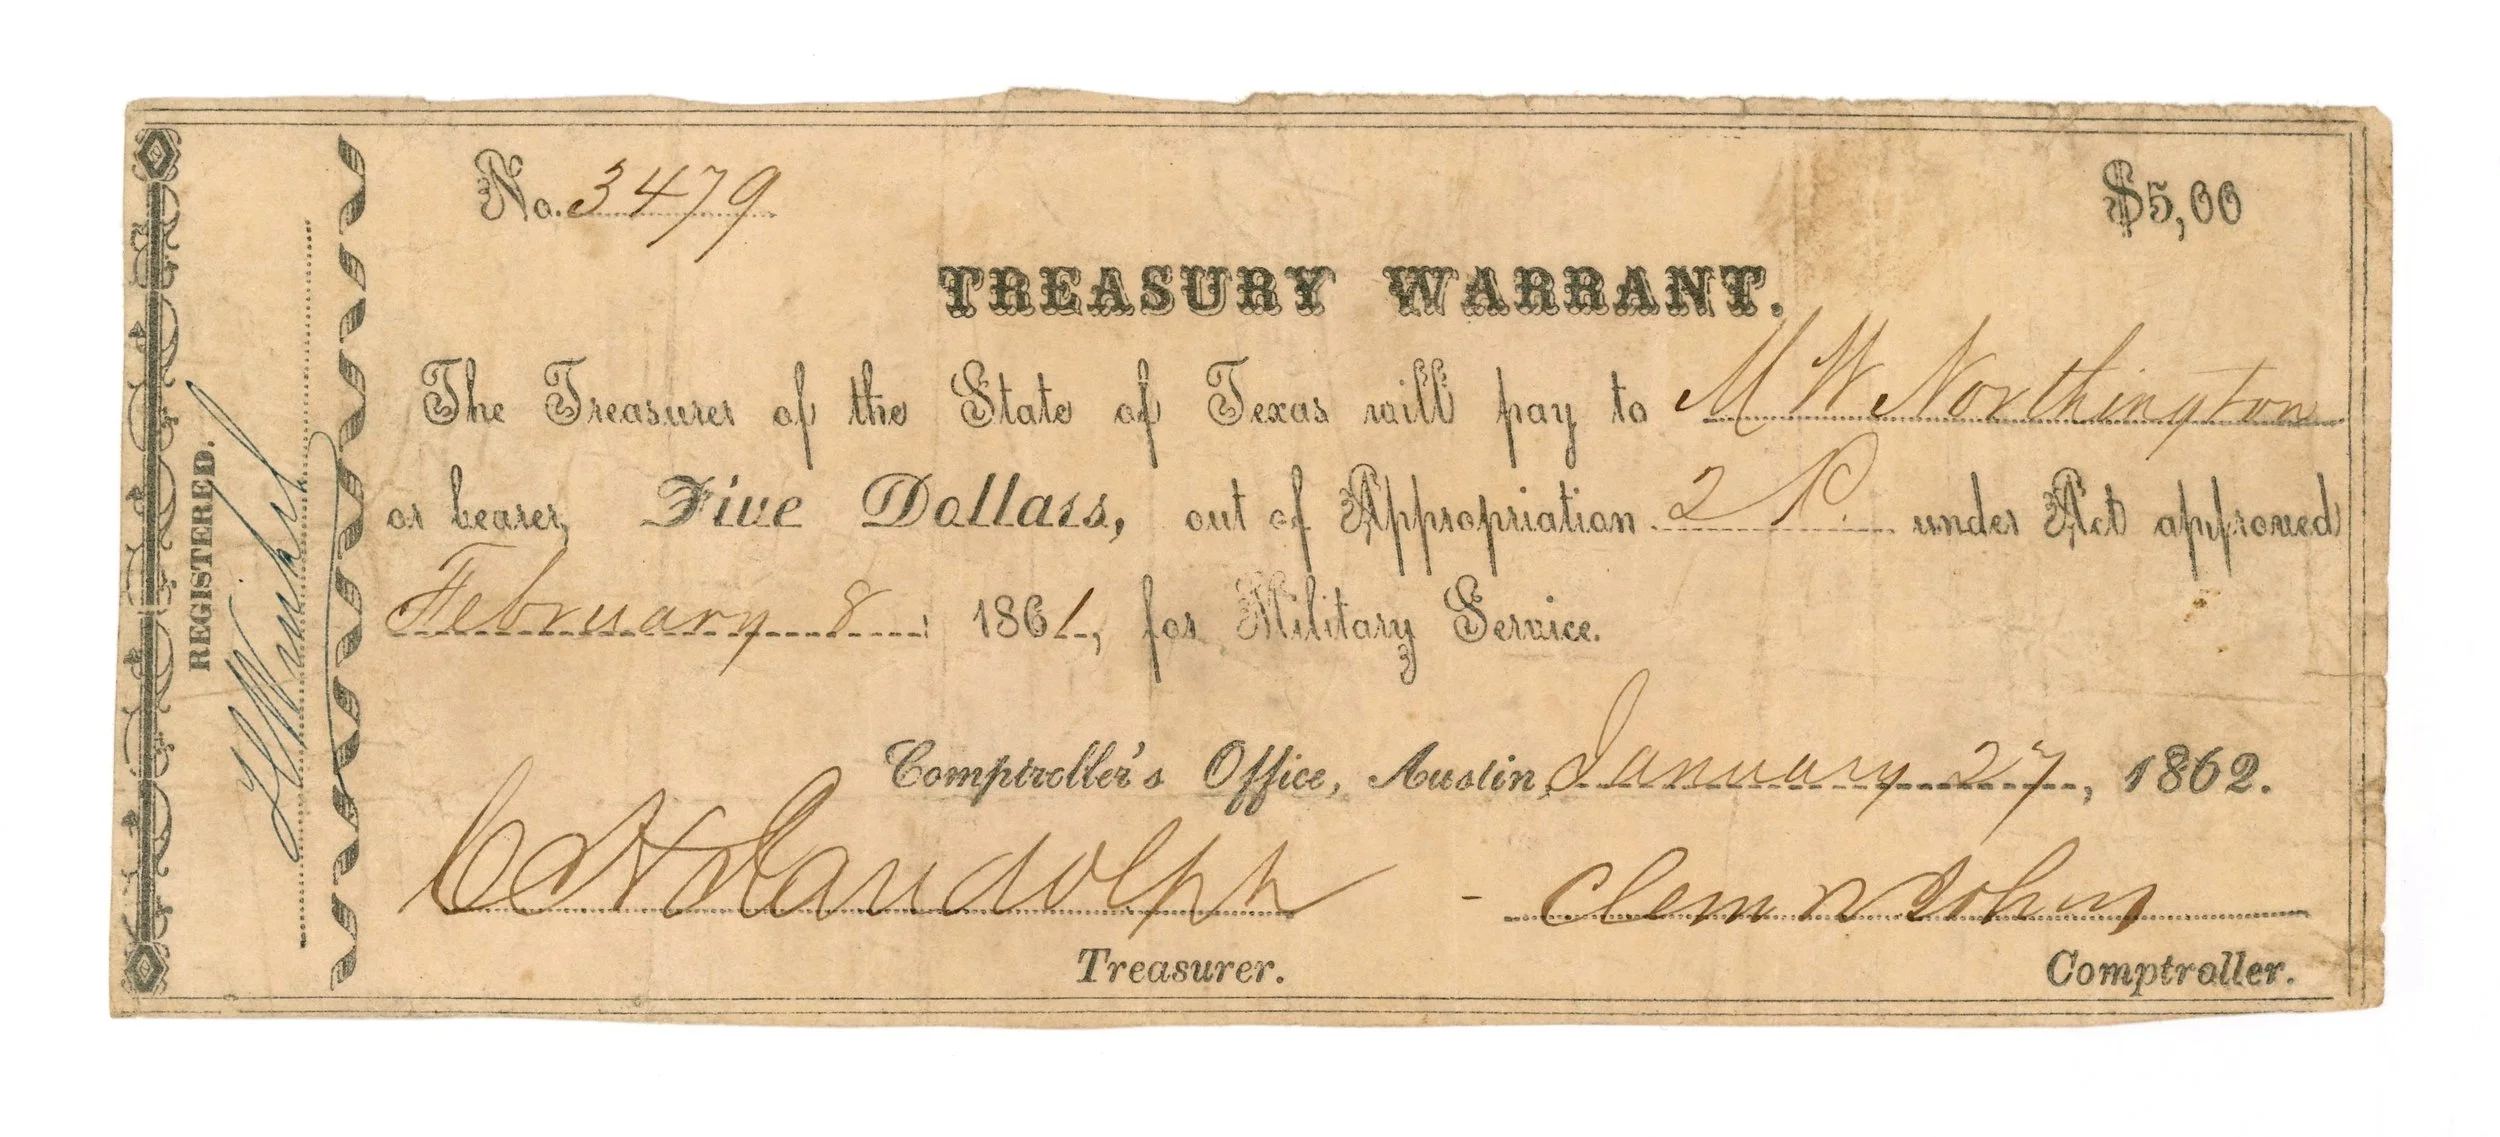 No. 3479
$5,00
TREASURY WARRANT.
The Treasurer of the State of Texas will pay to M W Northington
or bearer, Five Dollars, out of Appropriation 2 under Act approved
February 8, 1861, for Military Service.
Comptroller's Office, Austin, January 27, 1862.
C H Randolph - Clem R Johns
Treasurer. Comptroller.
REGISTERED.